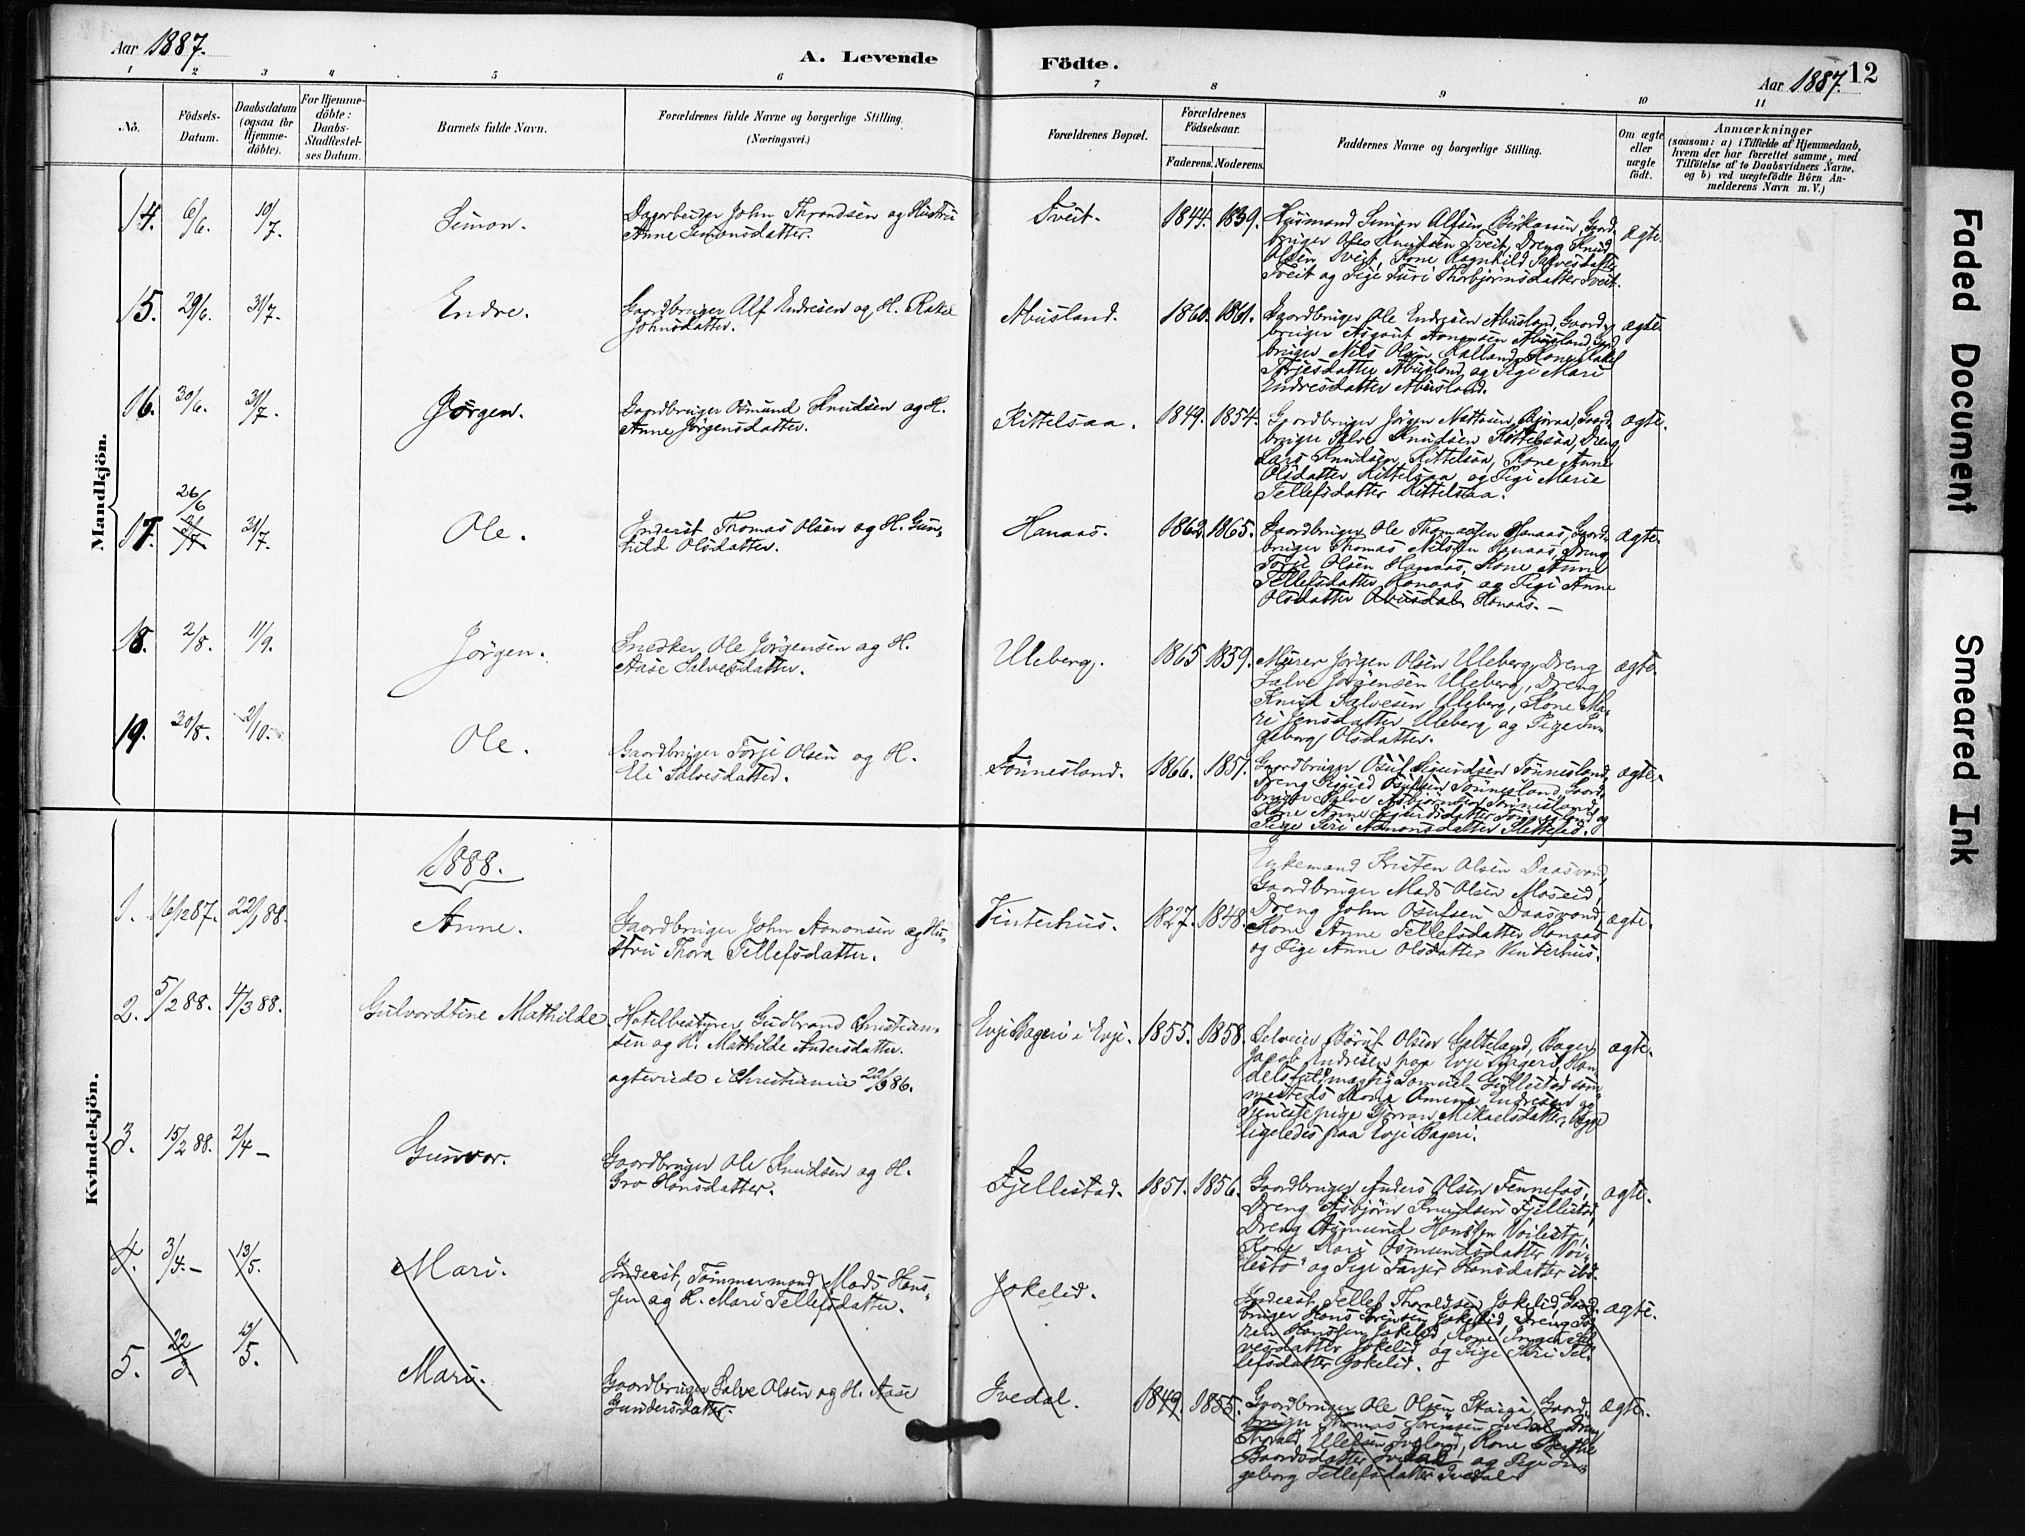 Aar 1887.
A. Levende Födte.
Aar 1887.
12
1 2 3 4 5 6 7 8 9 10 11
No.
Födsels-Datum.
Daabsdatum (ogsaa for Hjemme-döbte).
For Hjemme-döbte: Daabs-Stadfæstel-ses Datum.
Barnets fulde Navn.
Forældrenes fulde Navne og borgerlige Stilling.
(Næringsvei.)
Forældrenes Bopæl.
Forældrenes Födselsaar.
Faderens. Moderens.
Faddernes Navne og borgerlige Stilling.
Om ægte eller uægte födt.
Anmærkninger
(saasom: a) i Tilfælde af Hjemmedaab,
hvem der har forrettet samme, med
Tilföielse af to Daabsvidners Navne,
og b) ved uægtefödte Börn An-
melderens Navn m. V.)
Mandkjön.
14. 6/6. 10/7. Simon.
Dagarbeider John Throndsen og Hustru
Anne Simonsdatter.
Tveit. 1844. 1839.
Husmand Simon Alfsen Birkaasen, Gaard-
bruger Knudsen Tveit, Dreng Knud
Olsen Tveit, Kone Ragnhild Salvesdatter
Tveit og Pige Turi Thorbjørnsdatter Tveit.
ægte.
15. 29/6. 31/7. Endre.
Gaardbruger Alf Endresen og H. Rakel
Johnsdatter.
Abusland. 1860. 1861.
Gaardbruger Ole Endresen Abusland, Gaard-
bruger Aanonsen Abusland, Gaard-
bruger Nils Olsen Kalland, Kone Rakel
Torjesdatter Abusland og Pige Mari
Endresdatter Abusland.
ægte
16. 30/6. 31/7. Jörgen.
Gaardbruger Osmund Knudsen og H.
Anne Jörgensdatter.
Kittelsaa. 1849. 1854.
Gaardbruger Jörgen Gaard-
bruger Salve Knudsen Kittelsaa, Dreng
Lars Knudsen Kittelsaa, Kone Anne
Olsdatter Kittelsaa og Pige Marie
Tellefsdatter Kittelsaa.
ægte.
17. 26/6 31/7. Ole.
Inderst Thomas Olsen og H. Gun-
hild Olsdatter.
Hanaas. 1862. 1865.
Gaardbruger Ole Thomassen Hanaas, Gaard-
bruger Thomas Nilssen Hanaas, Dreng
Torje Olsen Hanaas, Kone Anne
Tellefsdatter Hanaas og Pige Anne
Olsdatter Abusdal Hanaas.
ægte.
18. 2/8. 11/9. Jörgen.
Snedker Ole Jörgensen og H.
Aase Salvesdatter.
Uleberg. 1865 1859.
Murer Jörgen Olsen Uleberg, Dreng
Salve Jörgensen Uleberg, Dreng
Knud Salvesen Uleberg, Kone Ma-
ri Jensdatter Uleberg og Pige In-
geborg Olsdatter.
ægte.
19. 20/8. 2/10. Ole.
Gaardbruger Torje Olsen og H.
Eli Salvesdatter.
Tönnesland. 1866. 1851.
Gaardbruger Osuf Sigurdsen Tönnesland,
Dreng Sigurd Osufsen Tönnesland, Gaard-
bruger Salve Asbjörnsen Tönnesland,
Kone Anne Sigurdsdatter Tönnesland og
Pige Siri Aanonsdatter
ægte.
Kvindekjön.
1888.
1. 16/12 87. 22/1 88. Anne.
Gaardbruger John Aanonsen og Hu-
stru Thora Tellefsdatter.
Vinterhus. 1827. 1848.
Enkemand Kristen Olsen Daasvand,
Gaardbruger Mads Olsen Moseid,
Dreng John Osufsen Daasvand,
Kone Anne Tellefsdatter Hanaas
og Pige Anne Olsdatter Vinterhus.
ægte.
2. 5/2 88. 4/3 88. Gulvordtine Mathilde.
Hotelbestyrer Gudbrand Christian-
sen og H. Mathilde Andersdatter.
ægteviede i Christiania 22/9 86.
Evje Bageri i Evje. 1855. 1858.
Selveier Böruf Olsen Galteland, Bager
Jacob Endresen paa Evje Bageri, Han-
delsfuldmægtig Samuel Gullestad sam-
mesteds, Kone Amine Endresen og
Tjenestepige Mikaelsdatter,
ligeledes paa Evje Bageri.
ægte.
3. 15/2 88. 2/4 – Gunvor.
Gaardbruger Ole Knudsen og H.
Gro Hansdatter.
Fjellestad. 1851. 1856.
Gaardbruger Anders Olsen Fennefos,
Dreng Asbjörn Knudsen Fjellestad,
Dreng Asmund Hanssen Voilestö,
Kone Kari Osmundsdatter Voi-
lestö og Pige Tarjer Hansdatter ibd.
ægte.
4. 3/4. – 13/5. Mari.
Inderst, Tömmermand Mads Hans-
sen og H. Mari Tellefsdatter.
Jokelid.
Inderst Tellef Thoraldsen Jokelid, Gaard-
bruger Hans Sörensen Jokelid, Dreng Sö-
ren Hanssen Jokelid, Kone Sal-
vesdatter Jokelid og Pige Siri Tel-
lefsdatter Jokelid.
ægte.
5. 22/3. 13/5. Mari.
Gaardbruger Salve Olsen og H. Aase
Gundersdatter.
Ivedal. 1849. 1855.
Gaardbruger Ole Olsen Skaiga, Gaard-
bruger Thomas Sörensen Ivedal, Dreng
Thorald Ellefsen Iveland, Kone Berthe
Baardsdatter Ivedal og Pige In-
geborg Tellefsdatter Ivedal
ægte.
Faded Document
Smeared Ink